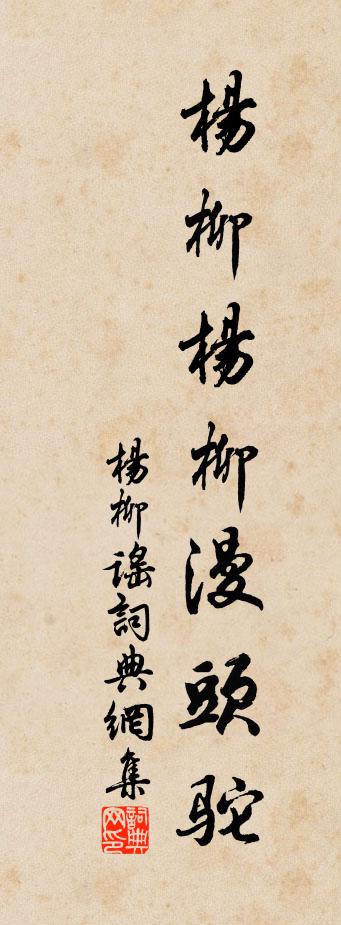 楊柳楊柳漫頭駝
楊柳謠詞典網集
詞典網印